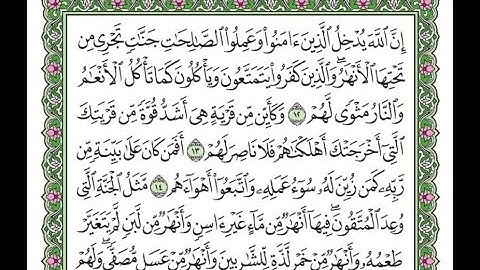 إِنَّ ٱللَّهَ يُدْخِلُ ٱلَّذِينَ ءَامَنُوا۟ وَعَمِلُوا۟ ٱلصَّـٰلِحَـٰتِ جَنَّـٰتٍ تَجْرِى مِن
تَحْتِهَا ٱلْأَنْهَـٰرُ ۖ وَٱلَّذِينَ كَفَرُوا۟ يَتَمَتَّعُونَ وَيَأْكُلُونَ كَمَا تَأْكُلُ ٱلْأَنْعَـٰمُ
وَٱلنَّارُ مَثْوًى لَّهُمْ ١٢ وَكَأَيِّن مِّن قَرْيَةٍ هِىَ أَشَدُّ قُوَّةً مِّن قَرْيَتِكَ
ٱلَّتِىٓ أَخْرَجَتْكَ أَهْلَكْنَـٰهُمْ فَلَا نَاصِرَ لَهُمْ ١٣ أَفَمَن كَانَ عَلَىٰ بَيِّنَةٍ مِّن
رَّبِّهِۦ كَمَن زُيِّنَ لَهُۥ سُوٓءُ عَمَلِهِۦ وَٱتَّبَعُوٓا۟ أَهْوَآءَهُم ١٤ مَّثَلُ ٱلْجَنَّةِ ٱلَّتِى
وُعِدَ ٱلْمُتَّقُونَ ۖ فِيهَآ أَنْهَـٰرٌ مِّن مَّآءٍ غَيْرِ ءَاسِنٍ وَأَنْهَـٰرٌ مِّن لَّبَنٍ لَّمْ يَتَغَيَّرْ
طَعْمُهُۥ وَأَنْهَـٰرٌ مِّنْ خَمْرٍ لَّذَّةٍ لِّلشَّـٰرِبِينَ وَأَنْهَـٰرٌ مِّنْ عَسَلٍ مُّصَفًّى ۖ وَلَهُمْ